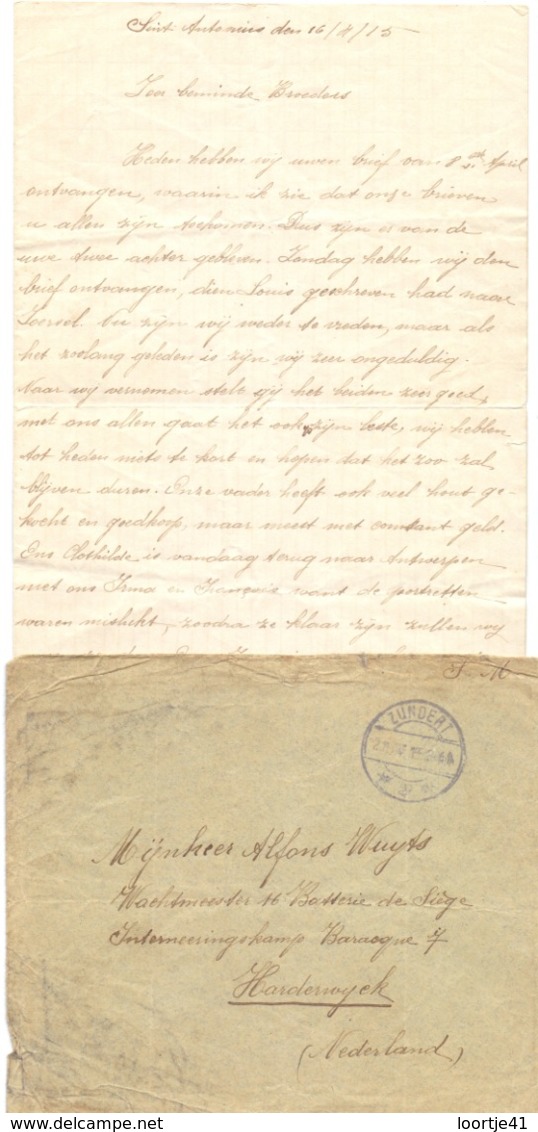 Sint Antonius den 16/4/15
Zeer beminde Broeders
Heden hebben wij uwen brief van 8 April
ontvangen, waarin ik zie dat onze brieven
u allen zijn toekomen. Dus zijn er van de
uwe twee achter gebleven. Zondag hebben wij den
brief ontvangen, dien Louis geschreven had naar
Loersel. Nu zijn wij weder te vreden, maar als
het zoolang geleden is zijn wij zeer ongeduldig.
Naar wij vernemen stelt gij het beiden zeer goed,
met ons allen gaat het ook zijn beste, wij hebben
tot heden niets te kort en hopen dat het zoo zal
blijven duren. Onze vader heeft ook veel hout ge-
kocht en goedkoop, maar moest met comtant geld.
Ons Clothilde is vandaag terug naar Antwerpen
met ons Irma en François want de portretten
waren mislukt, zoodra ze klaar zijn zullen wij
ZUNDERT
Mijnheer Alfons Wuyts
Wachtmeester 16 Batterie de Siège
Interneeringskamp Baracque 7
Harderwyck
(Nederland)
© loortje41